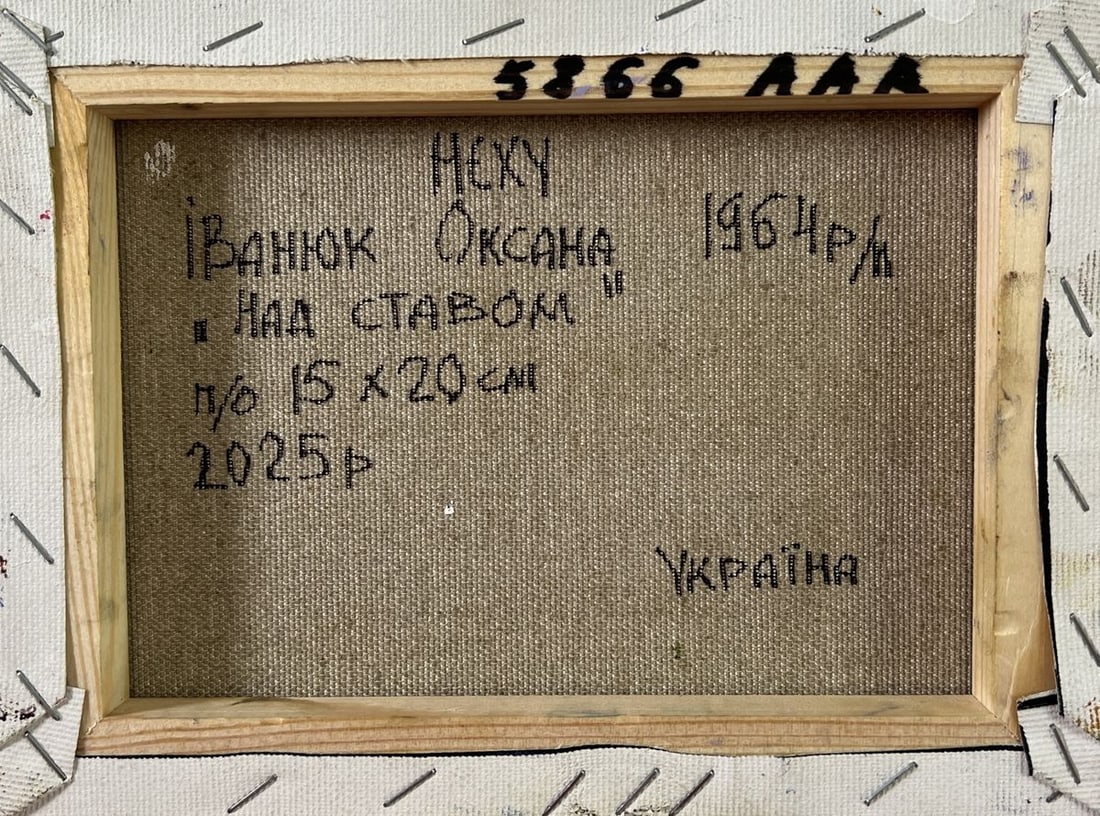 5866 ААА
НСХУ
Іванюк Оксана 1964 р/н
„Над ставом"
п/о 15 х 20 см
2025 р
Україна